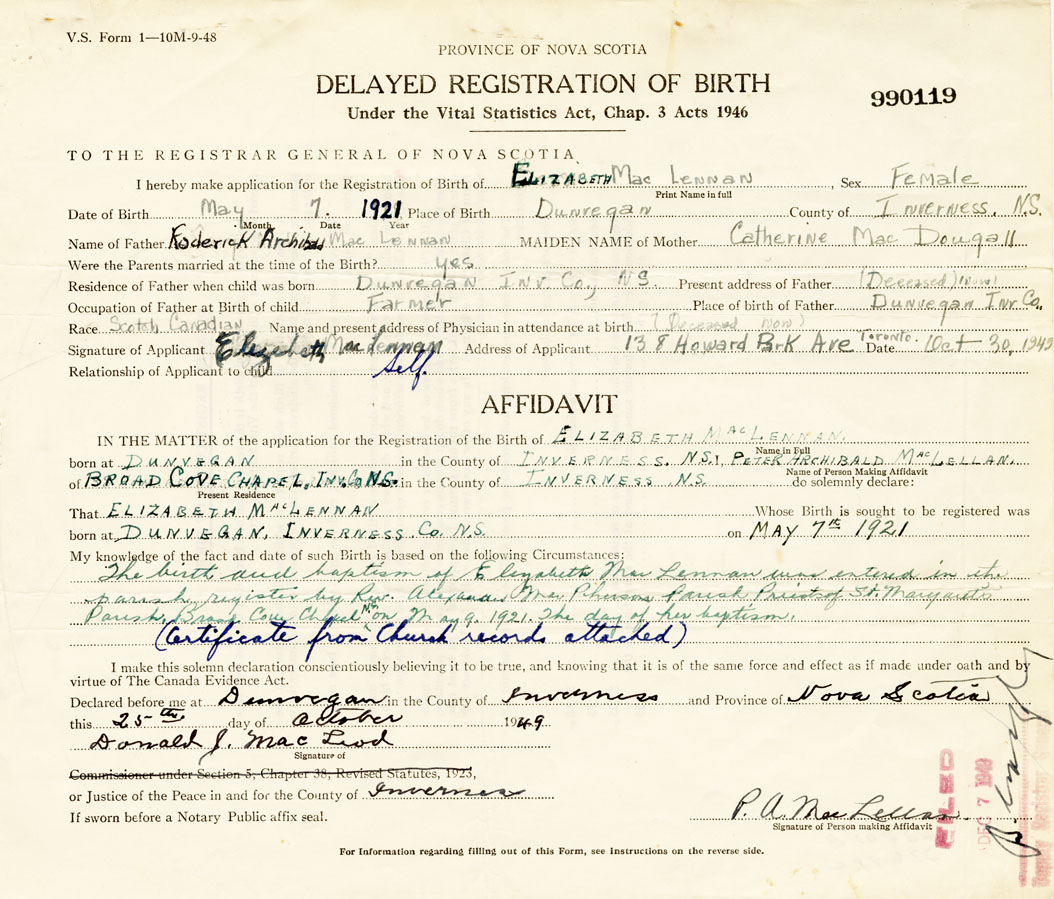 V.S. Form 1—10M-9-48
PROVINCE OF NOVA SCOTIA
DELAYED REGISTRATION OF BIRTH
990119
Under the Vital Statistics Act, Chap. 3 Acts 1946
TO THE REGISTRAR GENERAL OF NOVA SCOTIA
I hereby make application for the Registration of Birth of Elizabeth Mac Lennan, Sex Female
Print Name in full
Date of Birth May 7. 1921 Place of Birth Dunvegan County of Inverness, N.S.
Month Date Year
Name of Father Roderick Archibald Mac Lennan MAIDEN NAME of Mother Catherine Mac Dougall
Were the Parents married at the time of the Birth? yes
Residence of Father when child was born Dunvegan Inv. Co., N.S. Present address of Father (Deceased) now
Occupation of Father at Birth of child Farmer Place of birth of Father Dunvegan Inv. Co.
Race Scotch Canadian Name and present address of Physician in attendance at birth (Deceased now)
Signature of Applicant Elizabeth Mac Lennan Address of Applicant 138 Howard Park Ave Toronto. Date Oct 30, 1949
Relationship of Applicant to child Self.
AFFIDAVIT
IN THE MATTER of the application for the Registration of the Birth of ELIZABETH MacLENNAN.
Name in Full
born at DUNVEGAN in the County of INVERNESS. N.S. I, PETER ARCHIBALD MacLELLAN.
Name of Person Making Affidavit
of BROAD COVE CHAPEL, INV. Co. N.S. in the County of INVERNESS N.S. do solemnly declare:
Present Residence
That ELIZABETH MacLENNAN Whose Birth is sought to be registered was
born at DUNVEGAN, INVERNESS Co. N.S. on MAY 7th 1921
My knowledge of the fact and date of such Birth is based on the following Circumstances:
The birth and baptism of Elizabeth Mac Lennan was entered in the
parish register by Rev. Alexander MacPherson Parish Priest of St. Margaret's
Parish, Broad Cove Chapel N.S. on May 9. 1921. The day of her baptism.
(Certificate from Church records attached)
I make this solemn declaration conscientiously believing it to be true, and knowing that it is of the same force and effect as if made under oath and by
virtue of The Canada Evidence Act.
Declared before me at Dunvegan in the County of Inverness and Province of Nova Scotia
this 25th day of October 1949
Donald J. Mac Leod
Signature of
Commissioner under Section 5, Chapter 38, Revised Statutes, 1923,
or Justice of the Peace in and for the County of Inverness
If sworn before a Notary Public affix seal.
P. A. Mac Lellan
Signature of Person making Affidavit
FILED
DEC 7 1949
For Information regarding filling out of this Form, see Instructions on the reverse side.